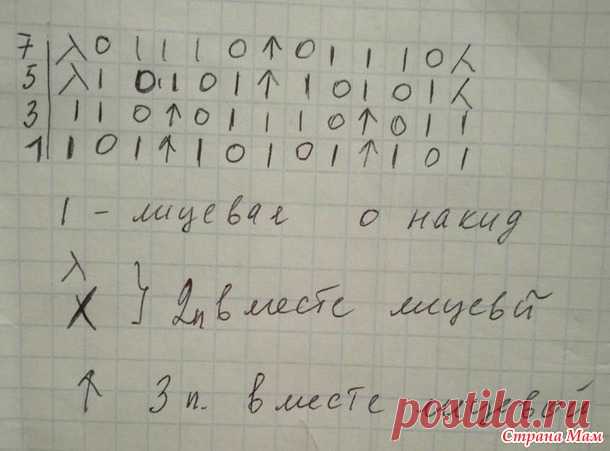 7 | λ 0 1 1 1 0 ↑ 0 1 1 1 0 ⅄
5 | λ 1 0 1 0 1 ↑ 1 0 1 0 1 ⅄
3 | 1 1 0 ↑ 0 1 1 1 0 ↑ 0 1 1
1 | 1 0 1 ↑ 1 0 1 0 1 ↑ 1 0 1
1 - лицевая о накид
λ
⅄ } 2п вместе лицевой
↑ 3 п. вместе лицевой
postila.ru
Страна Мам